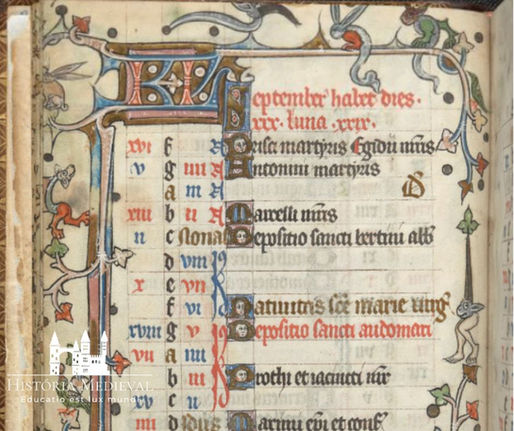 KL September habet dies.
xxx. luna. xxix.
xvi f Prisce martyris Egidii mris
v g iiii N Antonini martyris
a iii N D
xiii b ii N Marcelli mris
ii c Nonas Depositio sancti bertini abb
d viii
x e vii
f vi Natiuitas sce marie uirg
xviii g v Depositio sancti audomari
vii a iiii
b iii Prothi et iacincti mr
xv c ii
iiii d Idus epi et conf
HISTÓRIA MEDIEVAL
Educatio est lux mundi